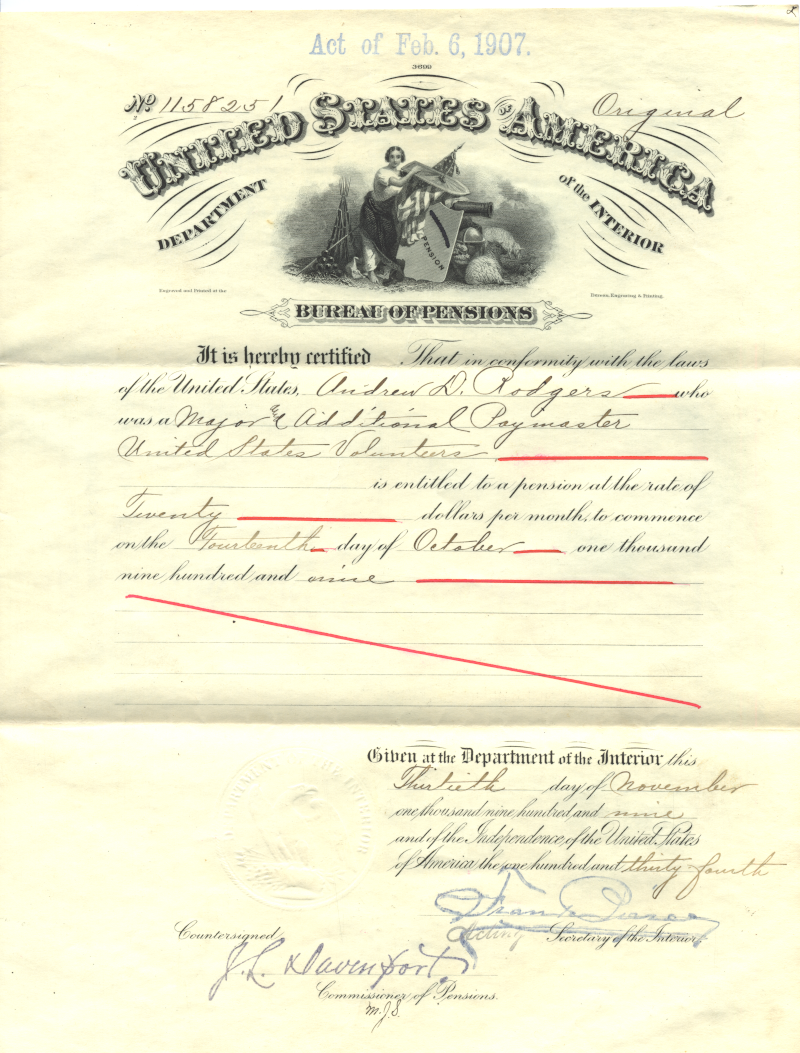 Act of Feb. 6, 1907.
3699
No. 1158251
Original
UNITED STATES OF AMERICA
DEPARTMENT of the INTERIOR
PENSION
Engraved and Printed at the
Bureau, Engraving & Printing.
BUREAU OF PENSIONS
It is hereby certified That in conformity with the laws
of the United States, Andrew D. Rodgers who
was a Major & Additional Paymaster
United States Volunteers
is entitled to a pension at the rate of
Twenty dollars per month, to commence
on the Fourteenth day of October one thousand
nine hundred and nine
Given at the Department of the Interior this
Thirtieth day of November
one thousand nine hundred and nine
and of the Independence of the United States
of America the one hundred and thirty fourth
Frank Pierce
Acting Secretary of the Interior.
Countersigned,
J. L. Davenport,
Commissioner of Pensions.
M.J.S.